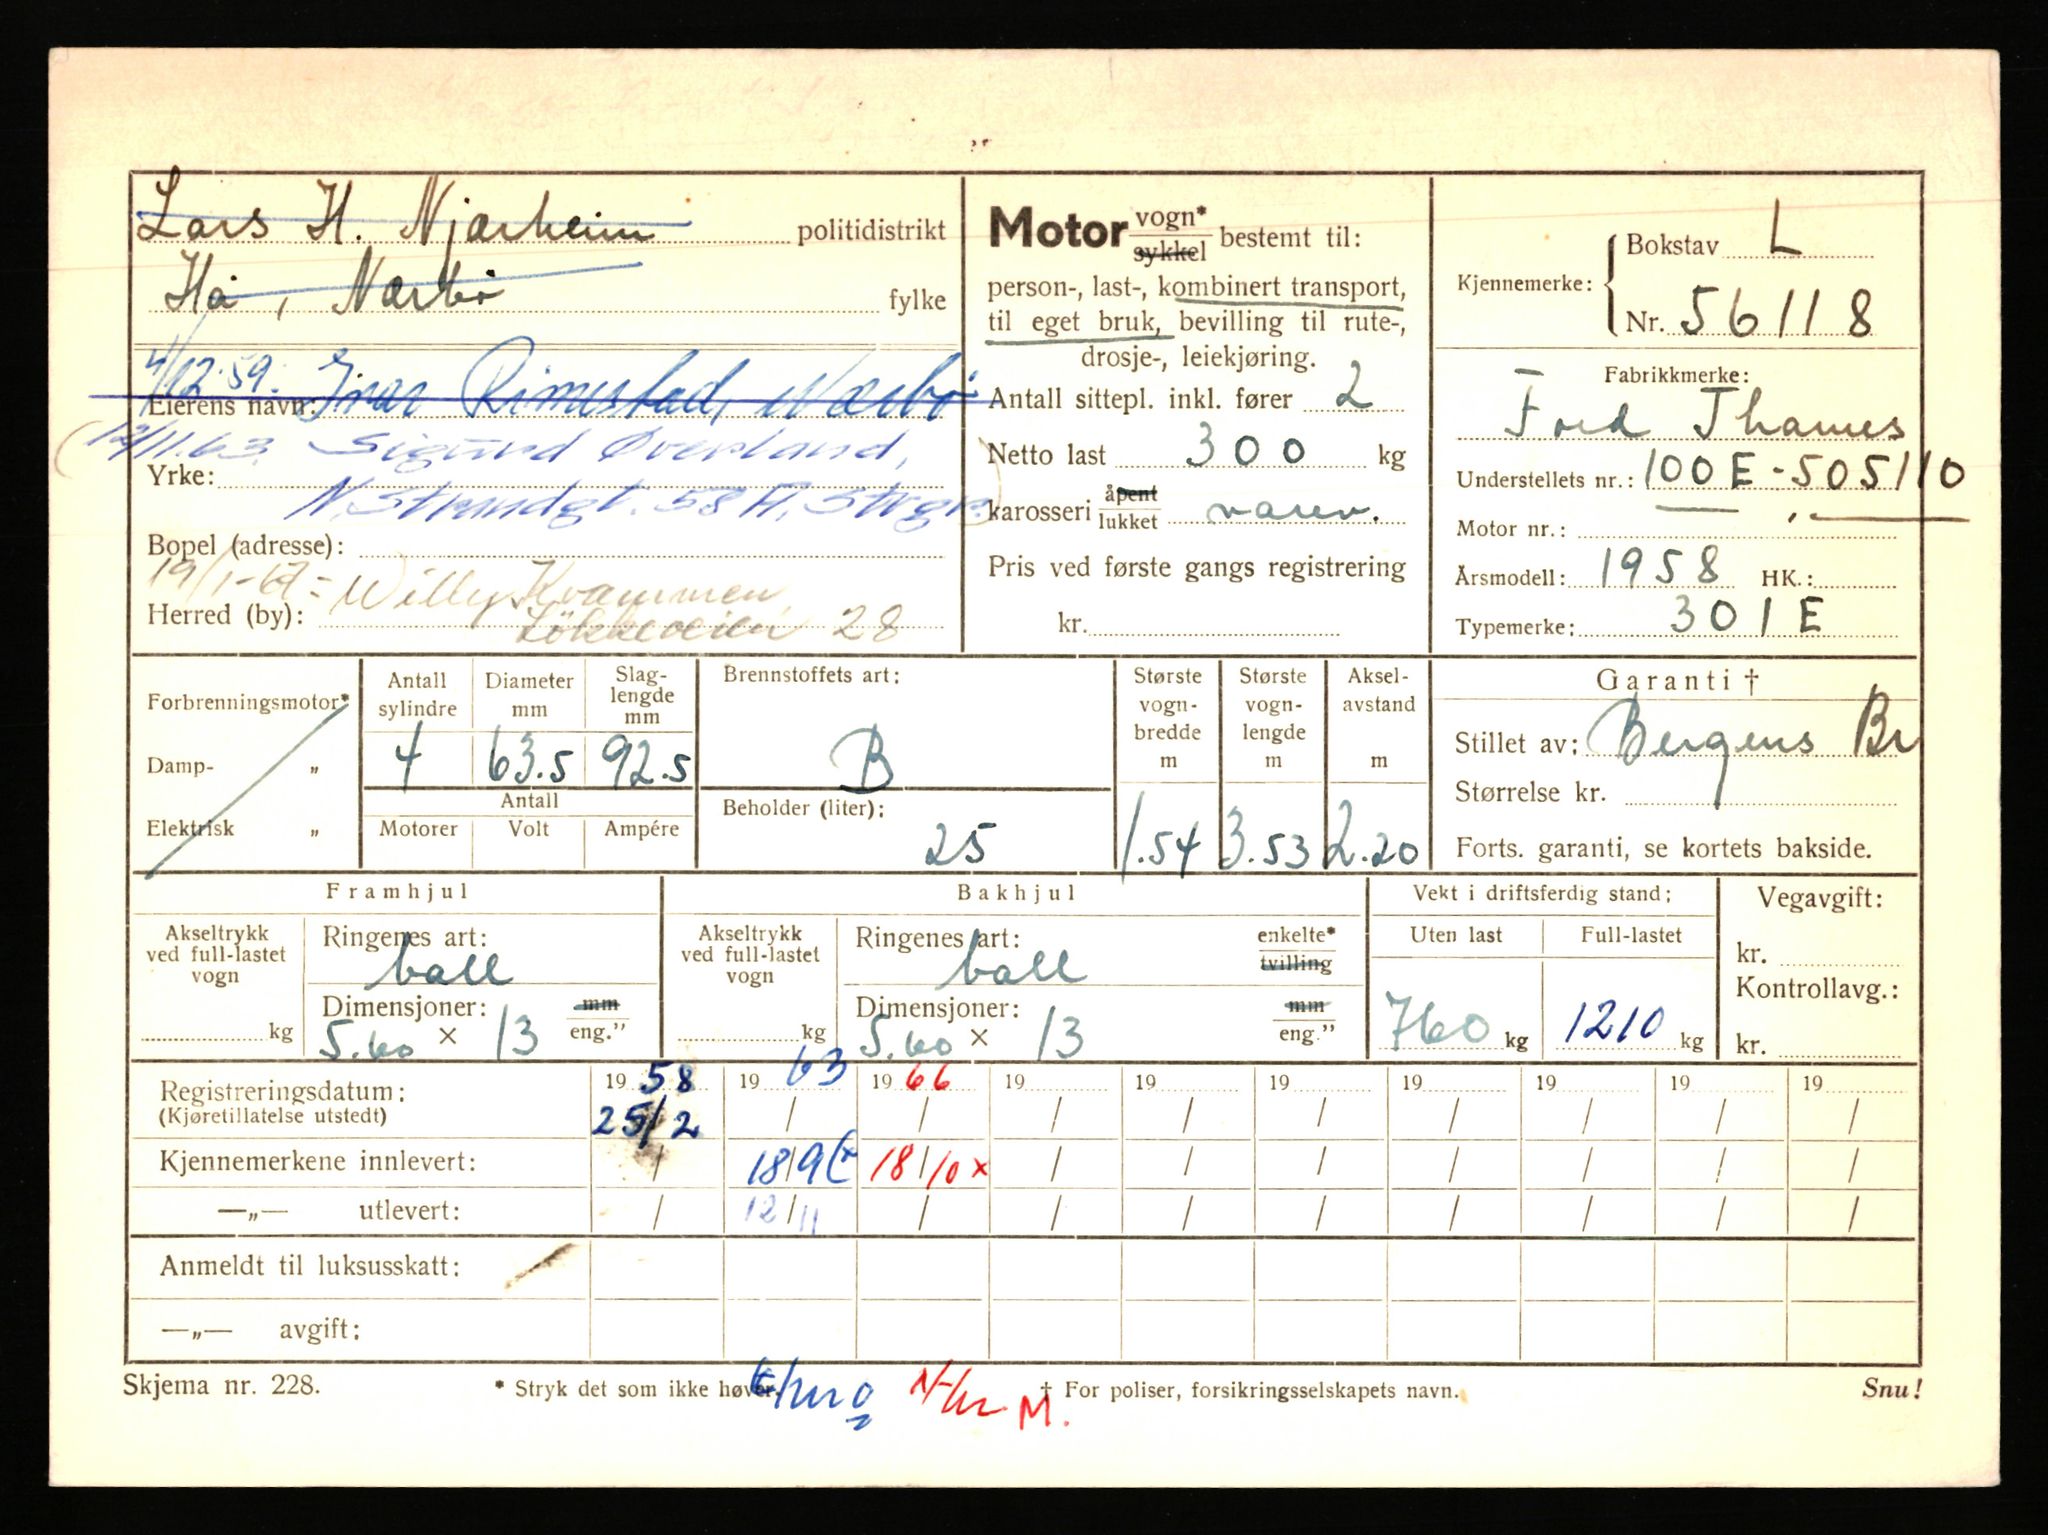 Lars H. Njærheim politidistrikt
Hå, Nærbø fylke
4/12.59. Ivar Rimestad, Nærbø
Eierens navn:
12/11.63. Sigurd Øverland,
Yrke:
N. Strandgt. 58 A, Stvgr.
Bopel (adresse):
19/1-67 = Willy Kvammen,
Herred (by): Lökkeveien 28
Motor vogn* sykkel bestemt til:
person-, last-, kombinert transport,
til eget bruk, bevilling til rute-,
drosje-, leiekjøring.
Antall sittepl. inkl. fører 2
Netto last 300 kg
karosseri åpent lukket varev.
Pris ved første gangs registrering
kr.
Kjennemerke: Bokstav L
Nr. 56118
Fabrikkmerke:
Ford Thames
Understellets nr.: 100E-505110
Motor nr.:
Årsmodell: 1958 HK.:
Typemerke: 301E
Forbrenningsmotor*
Damp- „
Elektrisk „
Antall sylindre Diameter mm Slag-lengde mm
4 63.5 92.5
Antall
Motorer Volt Ampére
Brennstoffets art:
B
Beholder (liter):
25
Største vogn-bredde m
1.54
Største vogn-lengde m
3.53
Aksel-avstand m
2.20
Garanti †
Stillet av: Bergens Br
Størrelse kr.
Forts. garanti, se kortets bakside.
Framhjul
Akseltrykk ved full-lastet vogn
kg
Ringenes art:
ball
Dimensjoner: mm
5.60 × 13 eng."
Bakhjul
Akseltrykk ved full-lastet vogn
kg
Ringenes art: enkelte*
ball tvilling
Dimensjoner: mm
5.60 × 13 eng."
Vekt i driftsferdig stand:
Uten last Full-lastet
760 kg 1210 kg
Vegavgift:
kr.
Kontrollavg.:
kr.
Registreringsdatum: 19 58 19 63 19 66 19 19 19 19 19 19 19
(Kjøretillatelse utstedt) 25/2 / / / / / / / / /
Kjennemerkene innlevert: / 18/9 (x 18/10 x / / / / / / /
—„— utlevert: / 12/11 / / / / / / / /
Anmeldt til luksusskatt:
—„— avgift:
Skjema nr. 228. * Stryk det som ikke høver. † For poliser, forsikringsselskapets navn. Snu!
M.